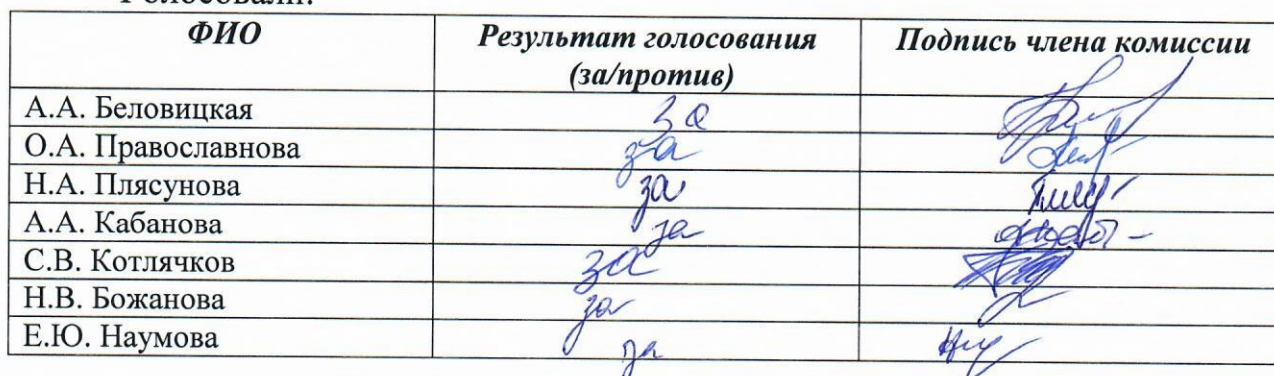 Голосовали:
ФИО Результат голосования (за/против) Подпись члена комиссии
А.А. Беловицкая за
О.А. Православнова за
Н.А. Плясунова за
А.А. Кабанова за
С.В. Котлячков за
Н.В. Божанова за
Е.Ю. Наумова за